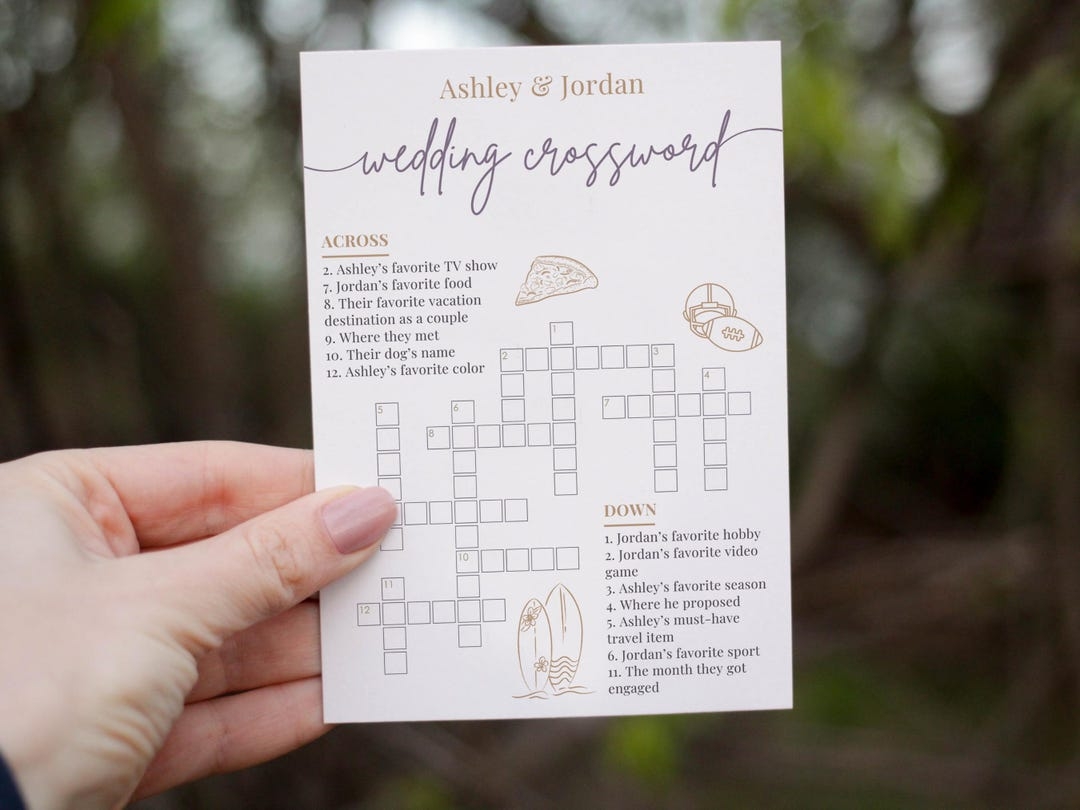 Ashley & Jordan
wedding crossword
ACROSS
2. Ashley's favorite TV show
7. Jordan's favorite food
8. Their favorite vacation
destination as a couple
9. Where they met
10. Their dog's name
12. Ashley's favorite color
1
2
3
4
5
6
7
8
10
11
12
DOWN
1. Jordan's favorite hobby
2. Jordan's favorite video
game
3. Ashley's favorite season
4. Where he proposed
5. Ashley's must-have
travel item
6. Jordan's favorite sport
11. The month they got
engaged